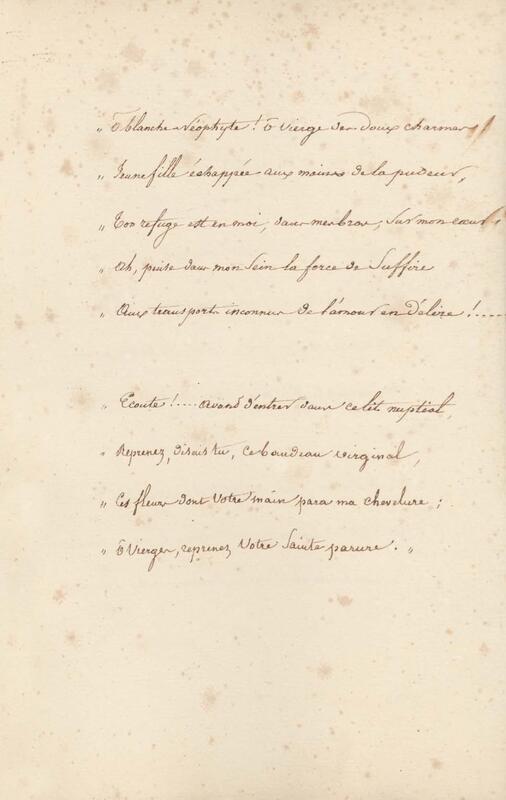 „ O blanche Néophyte ! O Vierge des doux charmes
„ Jeune fille échappée aux mains de la pudeur,
„ Ton refuge est en moi, dans mes bras, sur mon cœur,
„ Ah, puise dans mon sein la force de suffire
„ Aux transports inconnus de l'amour en délire !.....
„ Ecoute !.... avant d'entrer dans ce lit nuptial,
„ Reprenez, disais tu, ce bandeau virginal,
„ Ces fleurs dont votre main para ma chevelure ;
„ O Vierges, reprenez votre Sainte parure. „